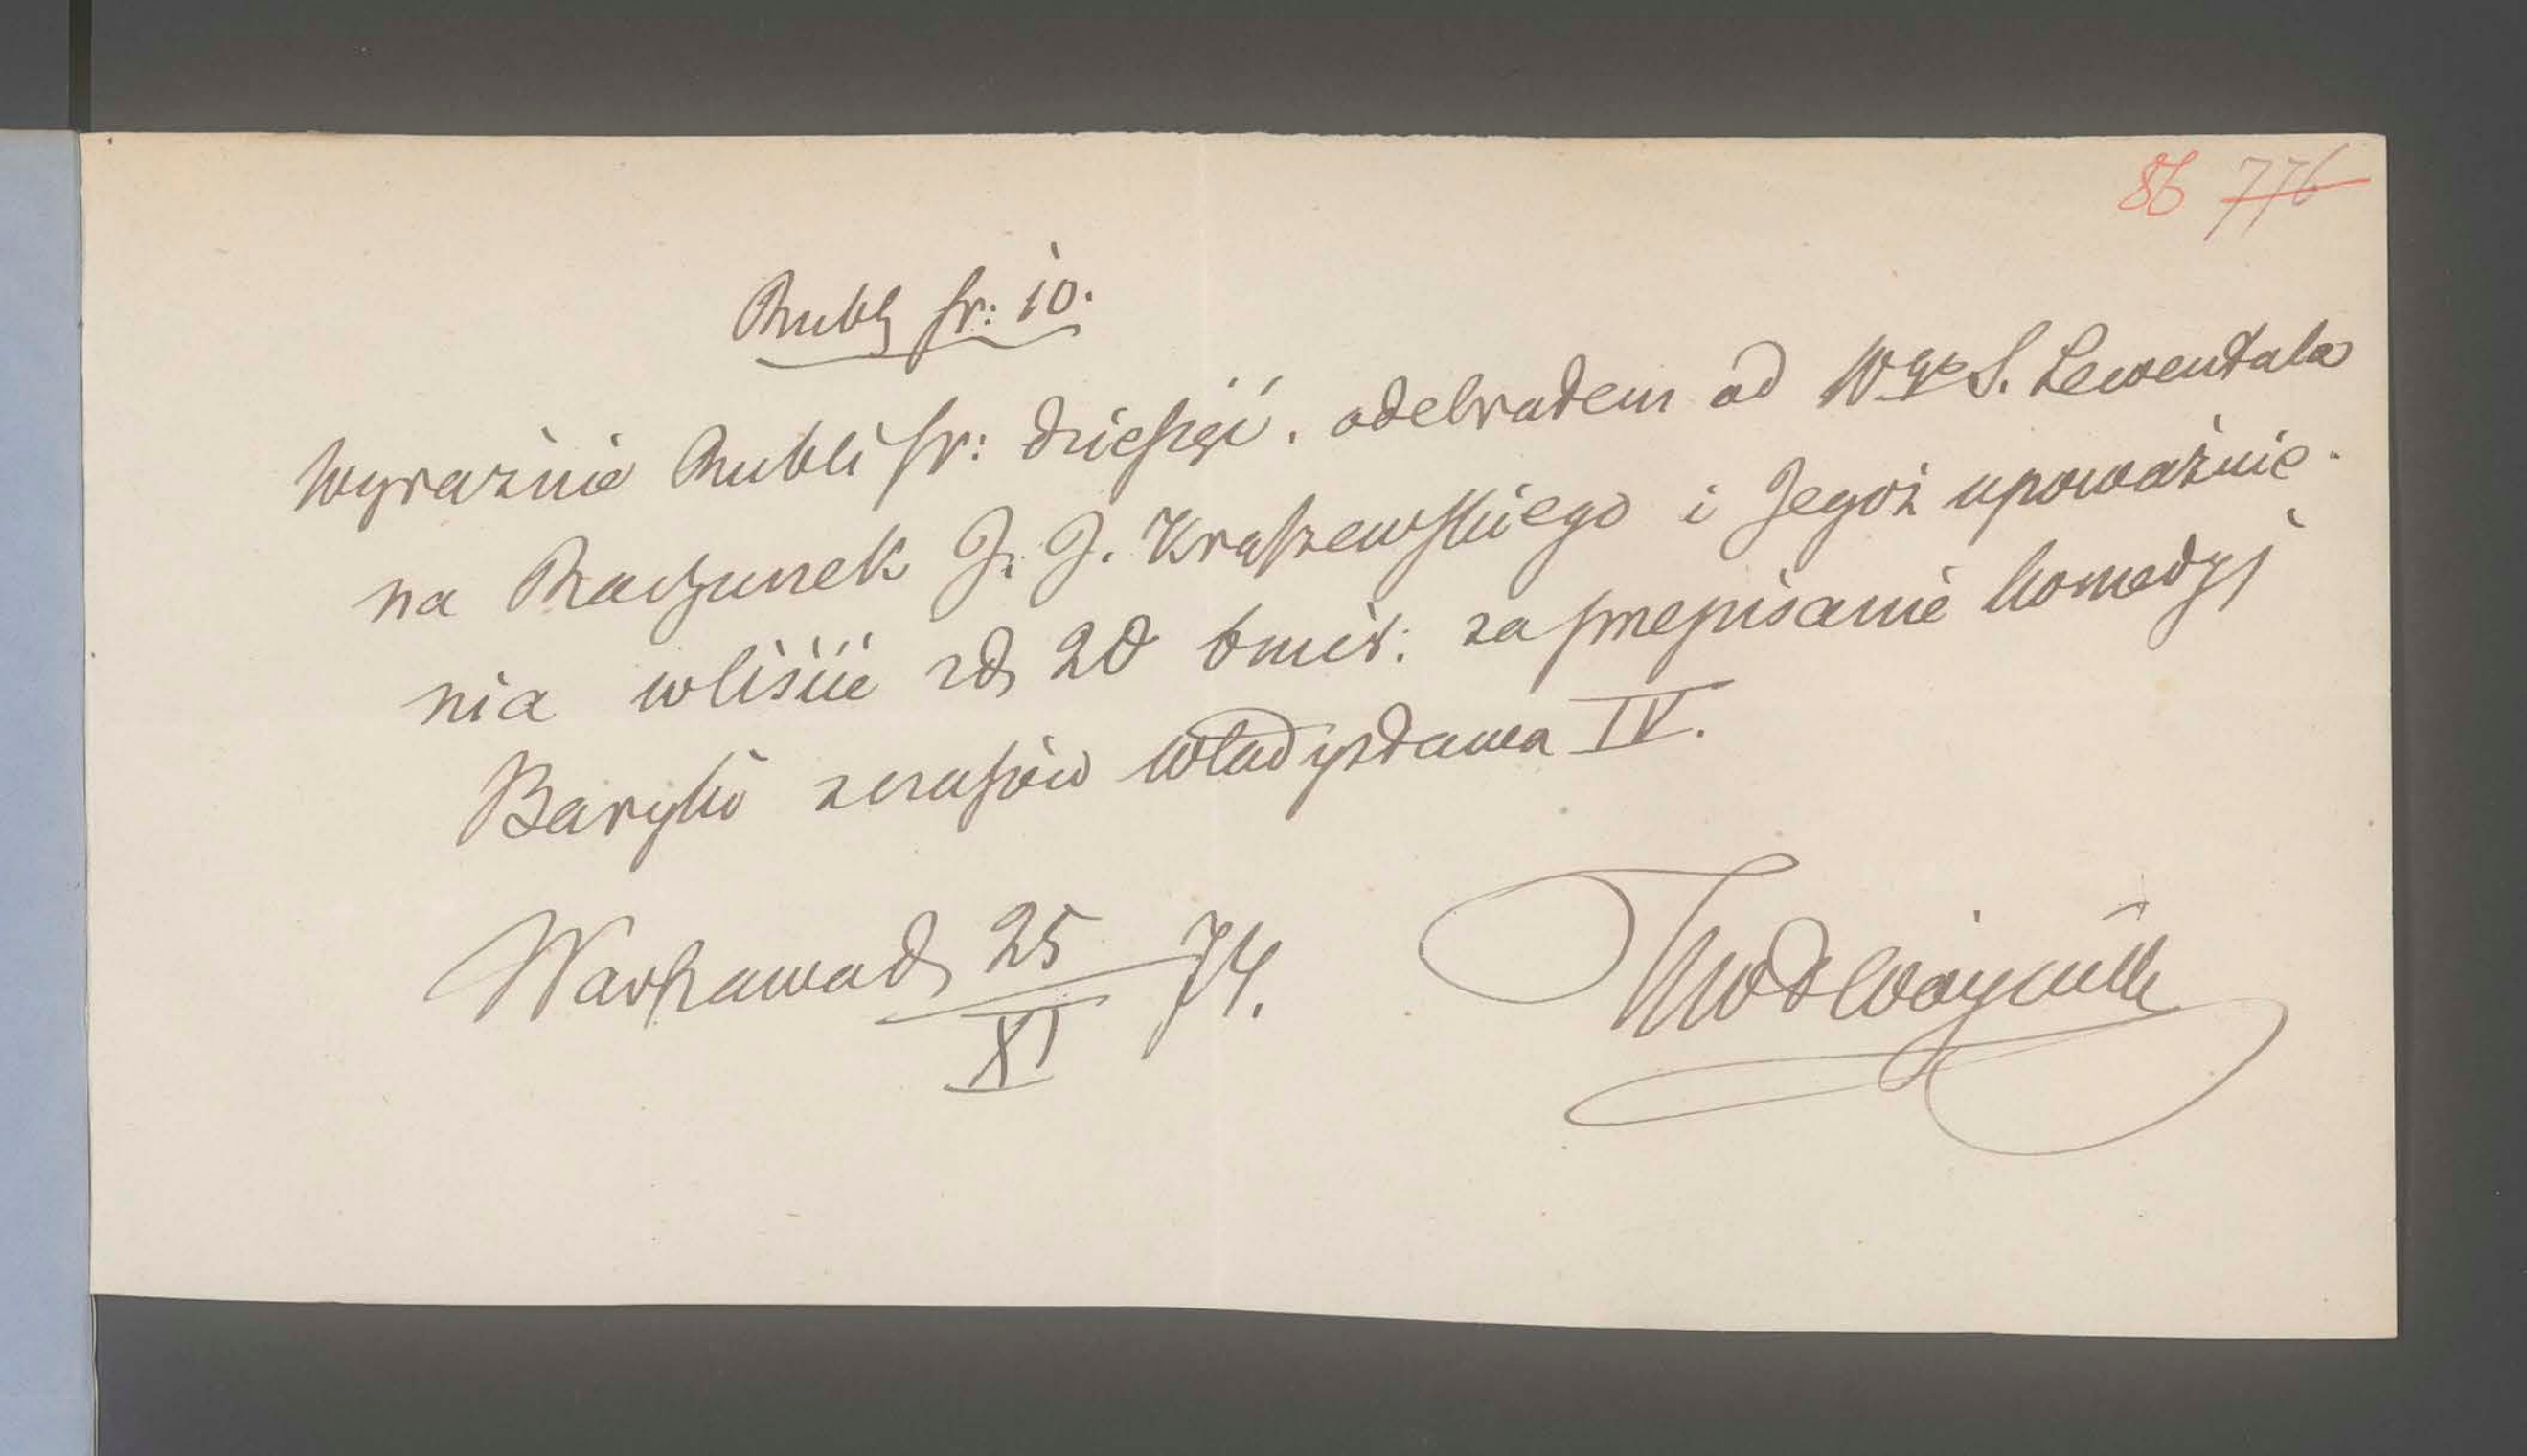 86 776
Rubli sr: 10.
Wyraźnie Rubli sr: dziesięć. odebrałem od Wgo S. Lewentala
na Rachunek J. J. Kraszewskiego i Jegoż upoważnie-
nia w liście z d. 20 b mies: za przepisanie komedyj
Baryki z czasów Władysława IV.
Warszawa d. 25/XI 74.